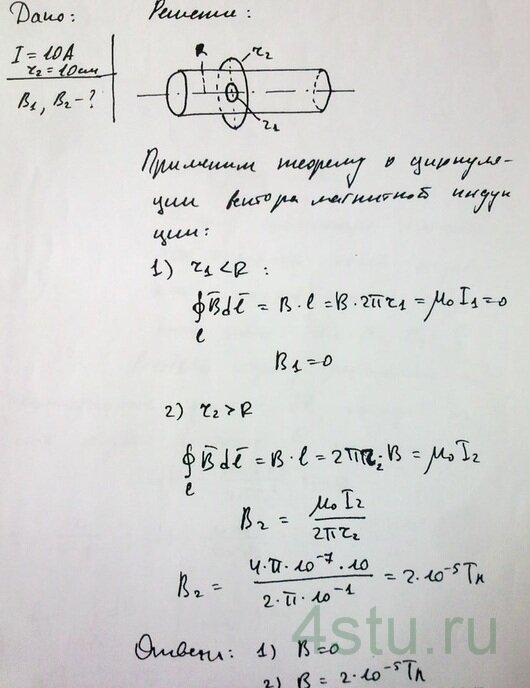 Дано:
Решение:
I = 10А
r₂ = 10см
B₁, B₂ - ?
R
r₂
r₁
Применим теорему о циркуля-
ции вектора магнитной индук
ции:
1) r₁ < R :
∮ B̄dl̄ = B · l = B · 2πr₁ = μ₀I₁ = 0
l
B₁ = 0
2) r₂ > R
∮ B̄dl̄ = B · l = 2πr₂ B = μ₀I₂
l
B₂ = μ₀I₂ / 2πr₂
B₂ = 4·π·10⁻⁷·10 / 2·π·10⁻¹ = 2·10⁻⁵Тл
Ответ: 1) B = 0
2) B = 2·10⁻⁵Тл
4stu.ru